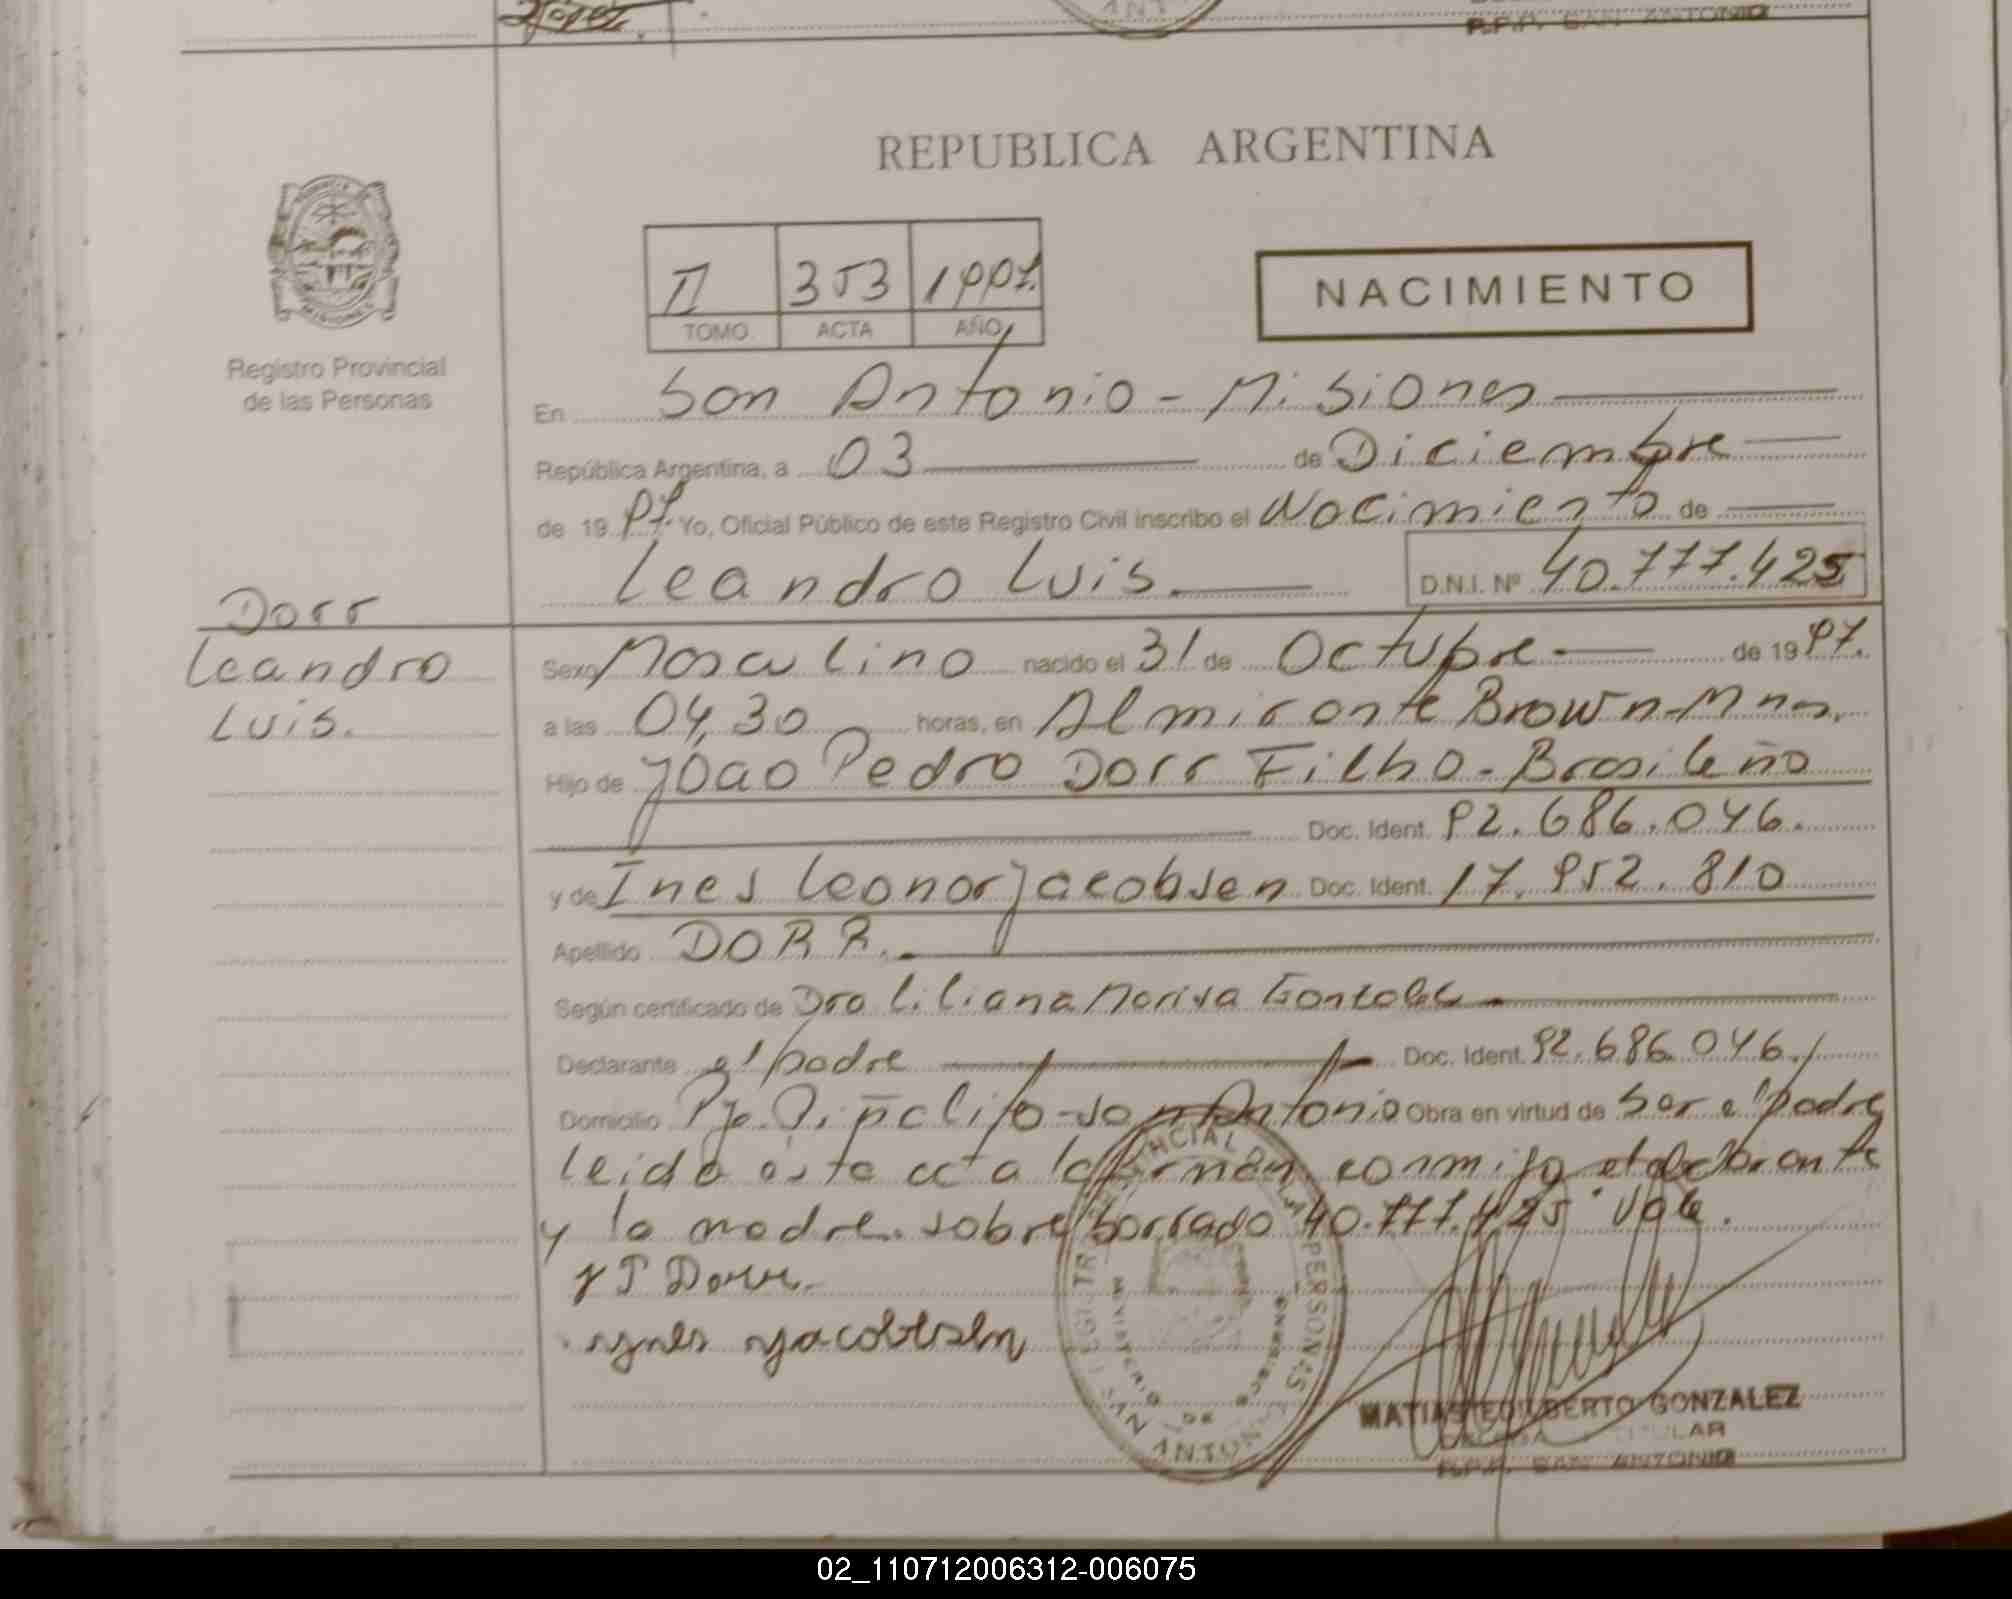 R.P.P. SAN ANTONIO
REPUBLICA ARGENTINA
II 353 1997.
TOMO ACTA AÑO
NACIMIENTO
Registro Provincial
de las Personas
En San Antonio - Misiones
República Argentina, a 03 de Diciembre
de 19 97. Yo, Oficial Público de este Registro Civil inscribo el Nacimiento de
Leandro Luis. D.N.I. Nº 40.777.425
Dorr
Leandro
Luis.
Sexo Masculino nacido el 31 de Octubre de 19 97.
a las 04,30 horas, en Almirante Brown-Mnes.
Hijo de Joao Pedro Dorr Filho - Brasileño
Doc. Ident. 92.686.046.
y de Ines Leonor Jacobsen Doc. Ident. 17.952.810
Apellido DORR.
Según certificado de Dra Liliana Marisa Gonzalez
Declarante el padre Doc. Ident. 92.686.046.
Domicilio Pje. San Antonio Obra en virtud de Ser el padre
leida esta acta la firman conmigo el declarante
y la madre. sobre borrado 40.777.425 Vale.
J P Dorr.
ynes yacobsen
MATIAS EDILBERTO GONZALEZ
TITULAR
R.P.P. SAN ANTONIO
02_110712006312-006075